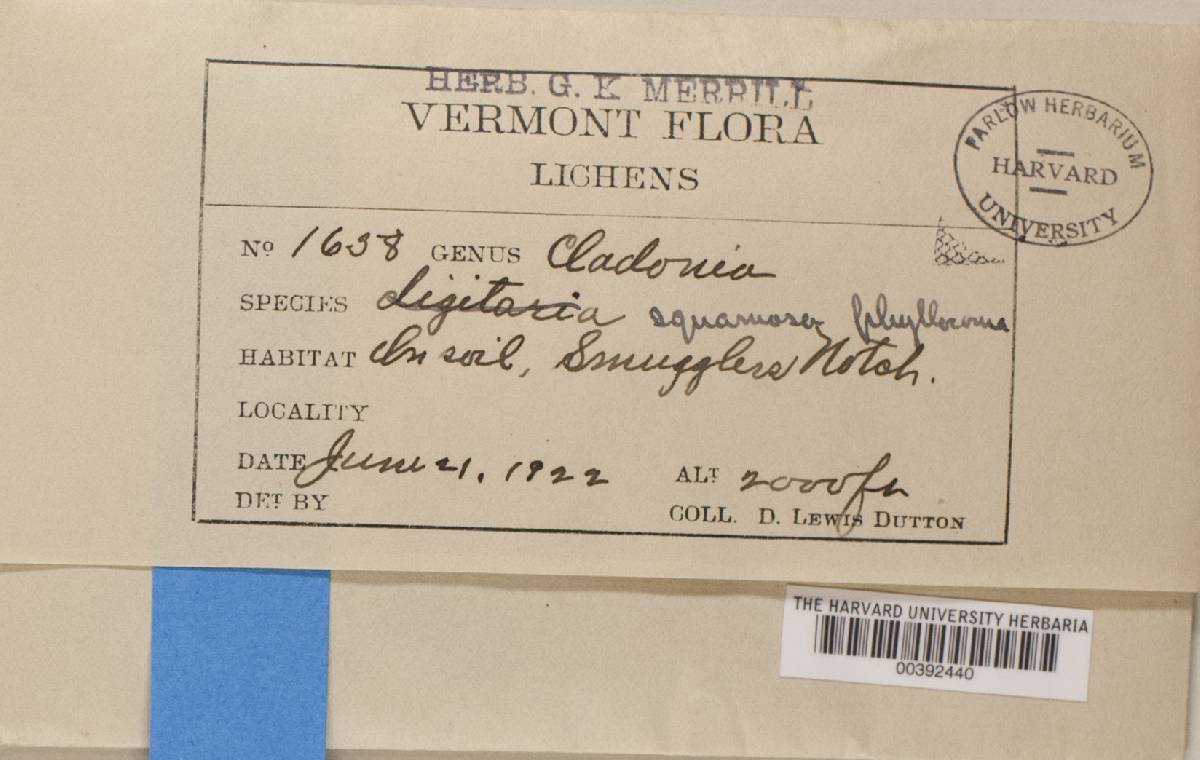 HERB. G. K MERRILL
VERMONT FLORA
LICHENS
FARLOW HERBARIUM
HARVARD
UNIVERSITY
No 1638 GENUS Cladonia
SPECIES digitaria squamosa phyllocoma
HABITAT On soil, Smugglers Notch.
LOCALITY
DATE June 21, 1922 ALT 2000 ft
DET BY
COLL. D. LEWIS DUTTON
THE HARVARD UNIVERSITY HERBARIA
00392440